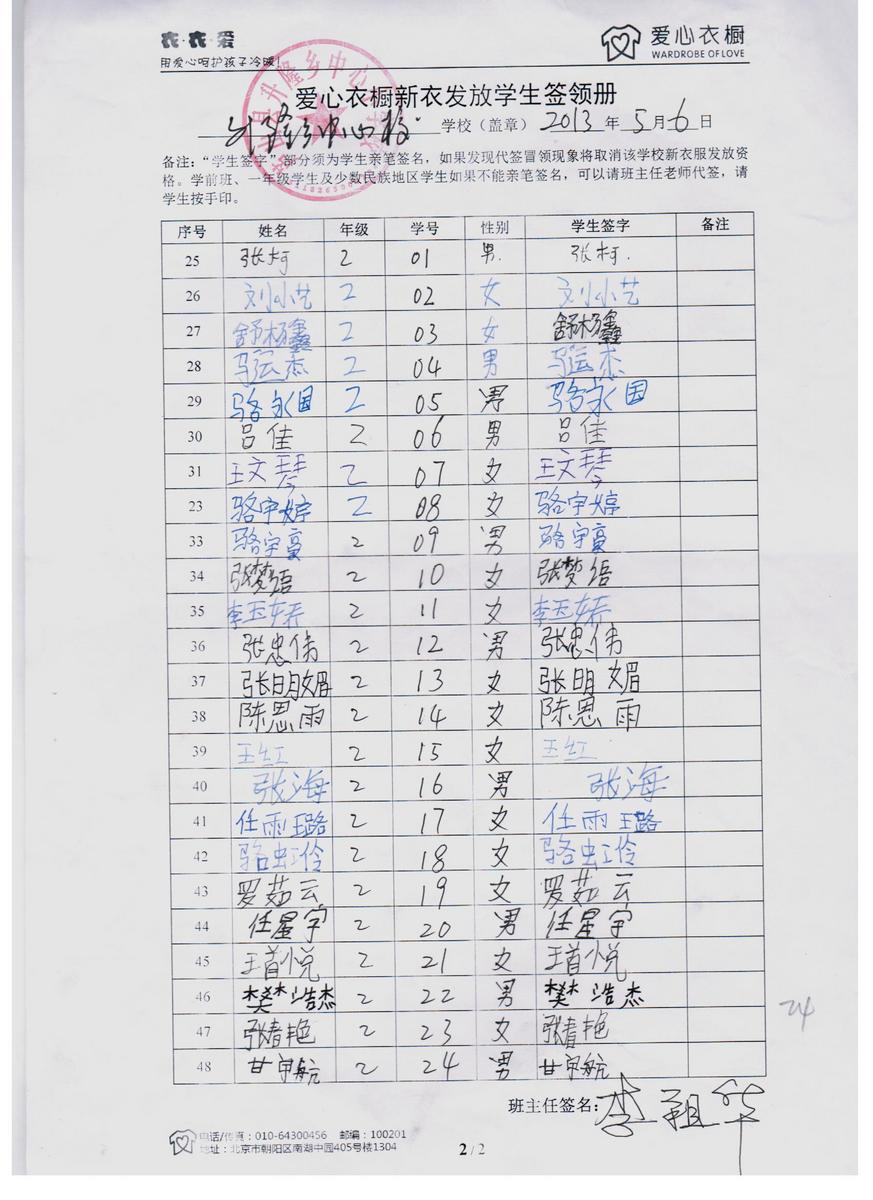 衣·衣·爱
用爱心呵护孩子冷暖!
爱心衣橱
WARDROBE OF LOVE
爱心衣橱新衣发放学生签领册
升隆乡中心校 学校（盖章） 2013 年 5 月 6 日
备注：“学生签字”部分须为学生亲笔签名，如果发现代签冒领现象将取消该学校新衣服发放资
格。学前班、一年级学生及少数民族地区学生如果不能亲笔签名，可以请班主任老师代签，请
学生按手印。
序号 姓名 年级 学号 性别 学生签字 备注
25 张柯 2 01 男. 张柯.
26 刘小艺 2 02 女 刘小艺
27 舒杨鑫 2 03 女 舒杨鑫
28 马运杰 2 04 男 马运杰
29 骆永国 2 05 男 骆永国
30 吕佳 2 06 男 吕佳
31 王文琴 2 07 女 王文琴
23 骆宇婷 2 08 女 骆宇婷
33 骆宇豪 2 09 男 骆宇豪
34 张梦语 2 10 女 张梦语
35 李玉娇 2 11 女 李玉娇
36 张忠伟 2 12 男 张忠伟
37 张明媚 2 13 女 张明媚
38 陈思雨 2 14 女 陈思雨
39 王红 2 15 女 王红
40 张海 2 16 男 张海
41 任雨璐 2 17 女 任雨璐
42 骆虹伶 2 18 女 骆虹伶
43 罗茹云 2 19 女 罗茹云
44 任星宇 2 20 男 任星宇
45 王首悦 2 21 女 王首悦
46 樊浩杰 2 22 男 樊浩杰
47 张春艳 2 23 女 张春艳
48 甘宇航 2 24 男 甘宇航
24
班主任签名：李祖华
电话/传真：010-64300456 邮编：100201
地址：北京市朝阳区南湖中园405号楼1304
2 / 2